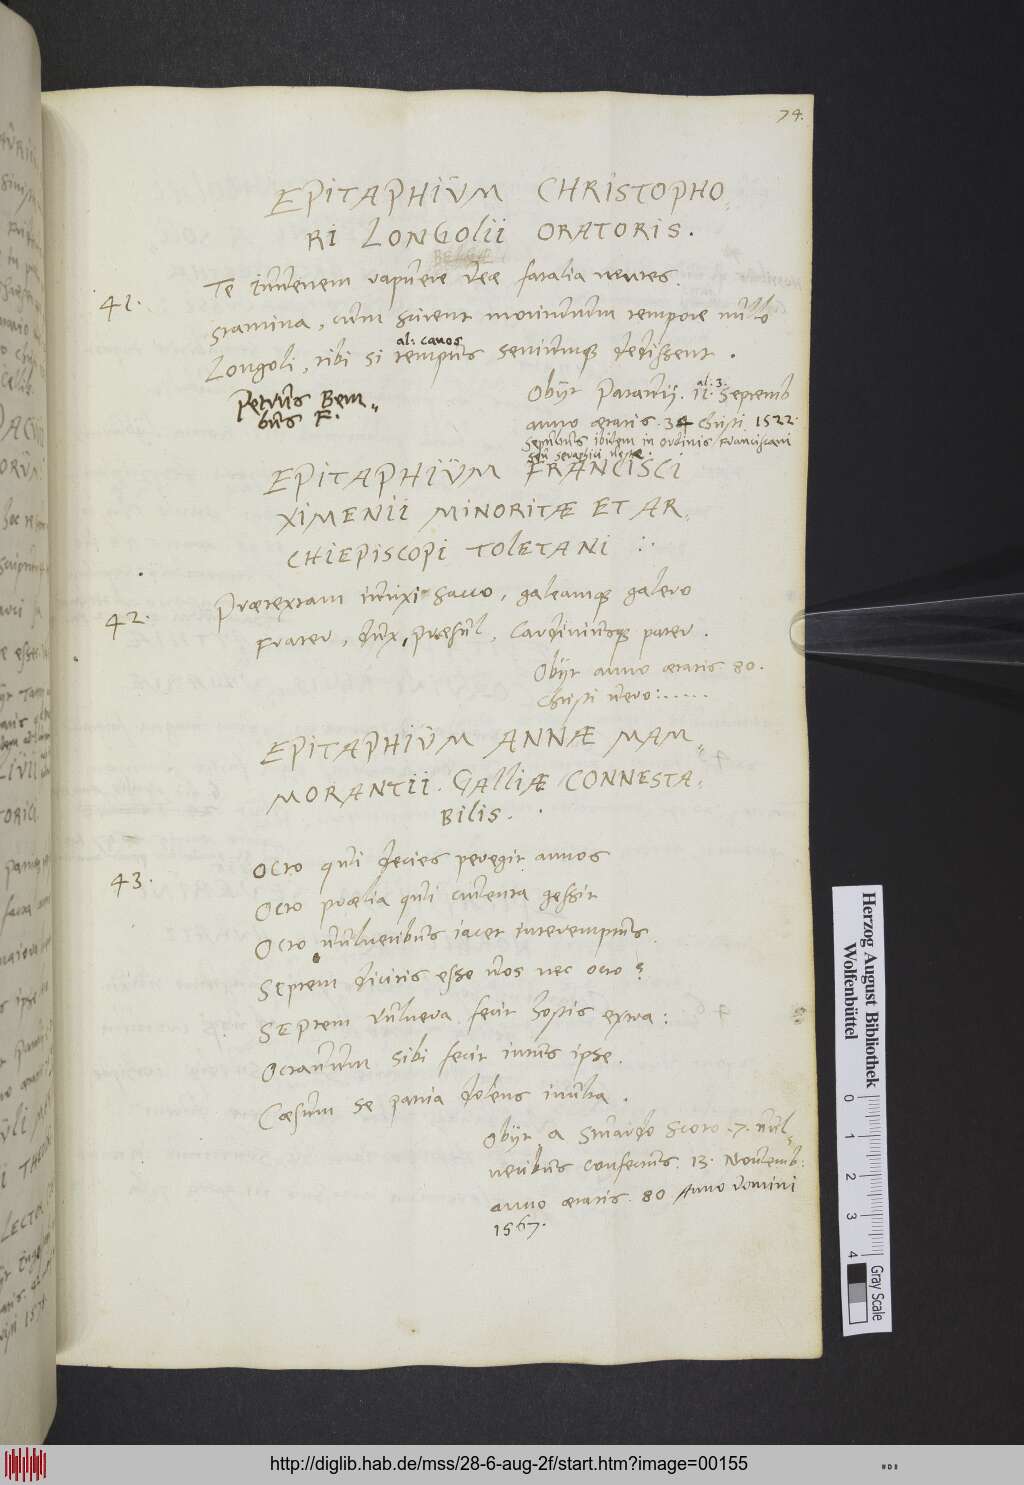 74.
EPITAPHIUM CHRISTOPHO„
RI LONGOLII ORATORIS.
BELGAE
41.
Te iuvenem rapuere deae fatalia nentes
Stamina, cum scirent moriturum tempore nullo
al: canos
Longoli, tibi si tempus seniumq́ dedissent.
Petrus Bem„
bus F.
al: 3.
Obijt Patavij. 11. Septemb
anno aetatis. 34 Christi 1522.
Sepultus ibidem in ordinis Franciscani
seu seraphici veste.
EPITAPHIUM FRANCISCI
XIMENII MINORITÆ ET AR„
CHIEPISCOPI TOLETANI :·
42.
Praetextam iunxi sacco, galeamq́ galero
Frater, dux, praesul, Cardineusq́ pater.
Obijt anno aetatis 80.
Christi vero:.....
EPITAPHIUM ANNÆ MAM„
MORANTII. GALLIÆ CONNESTA„
BILIS.
43.
Octo qui decies peregit annos
Octo praelia qui cruenta gessit
Octo vulneribus iacet interemptus.
Septem dicitis esse vos nec octo?
Septem vulnera fecit hostis extra:
Octavum sibi fecit intus ipse.
Caesum se patria dolens inulta.
Obijt a Stuardo Scoto .7. vul„
neribus confectus. 13. Novemb:
anno aetatis. 80 Anno domini
1567.
Herzog August Bibliothek
Wolfenbüttel
0 1 2 3 4
Gray Scale
http://diglib.hab.de/mss/28-6-aug-2f/start.htm?image=00155